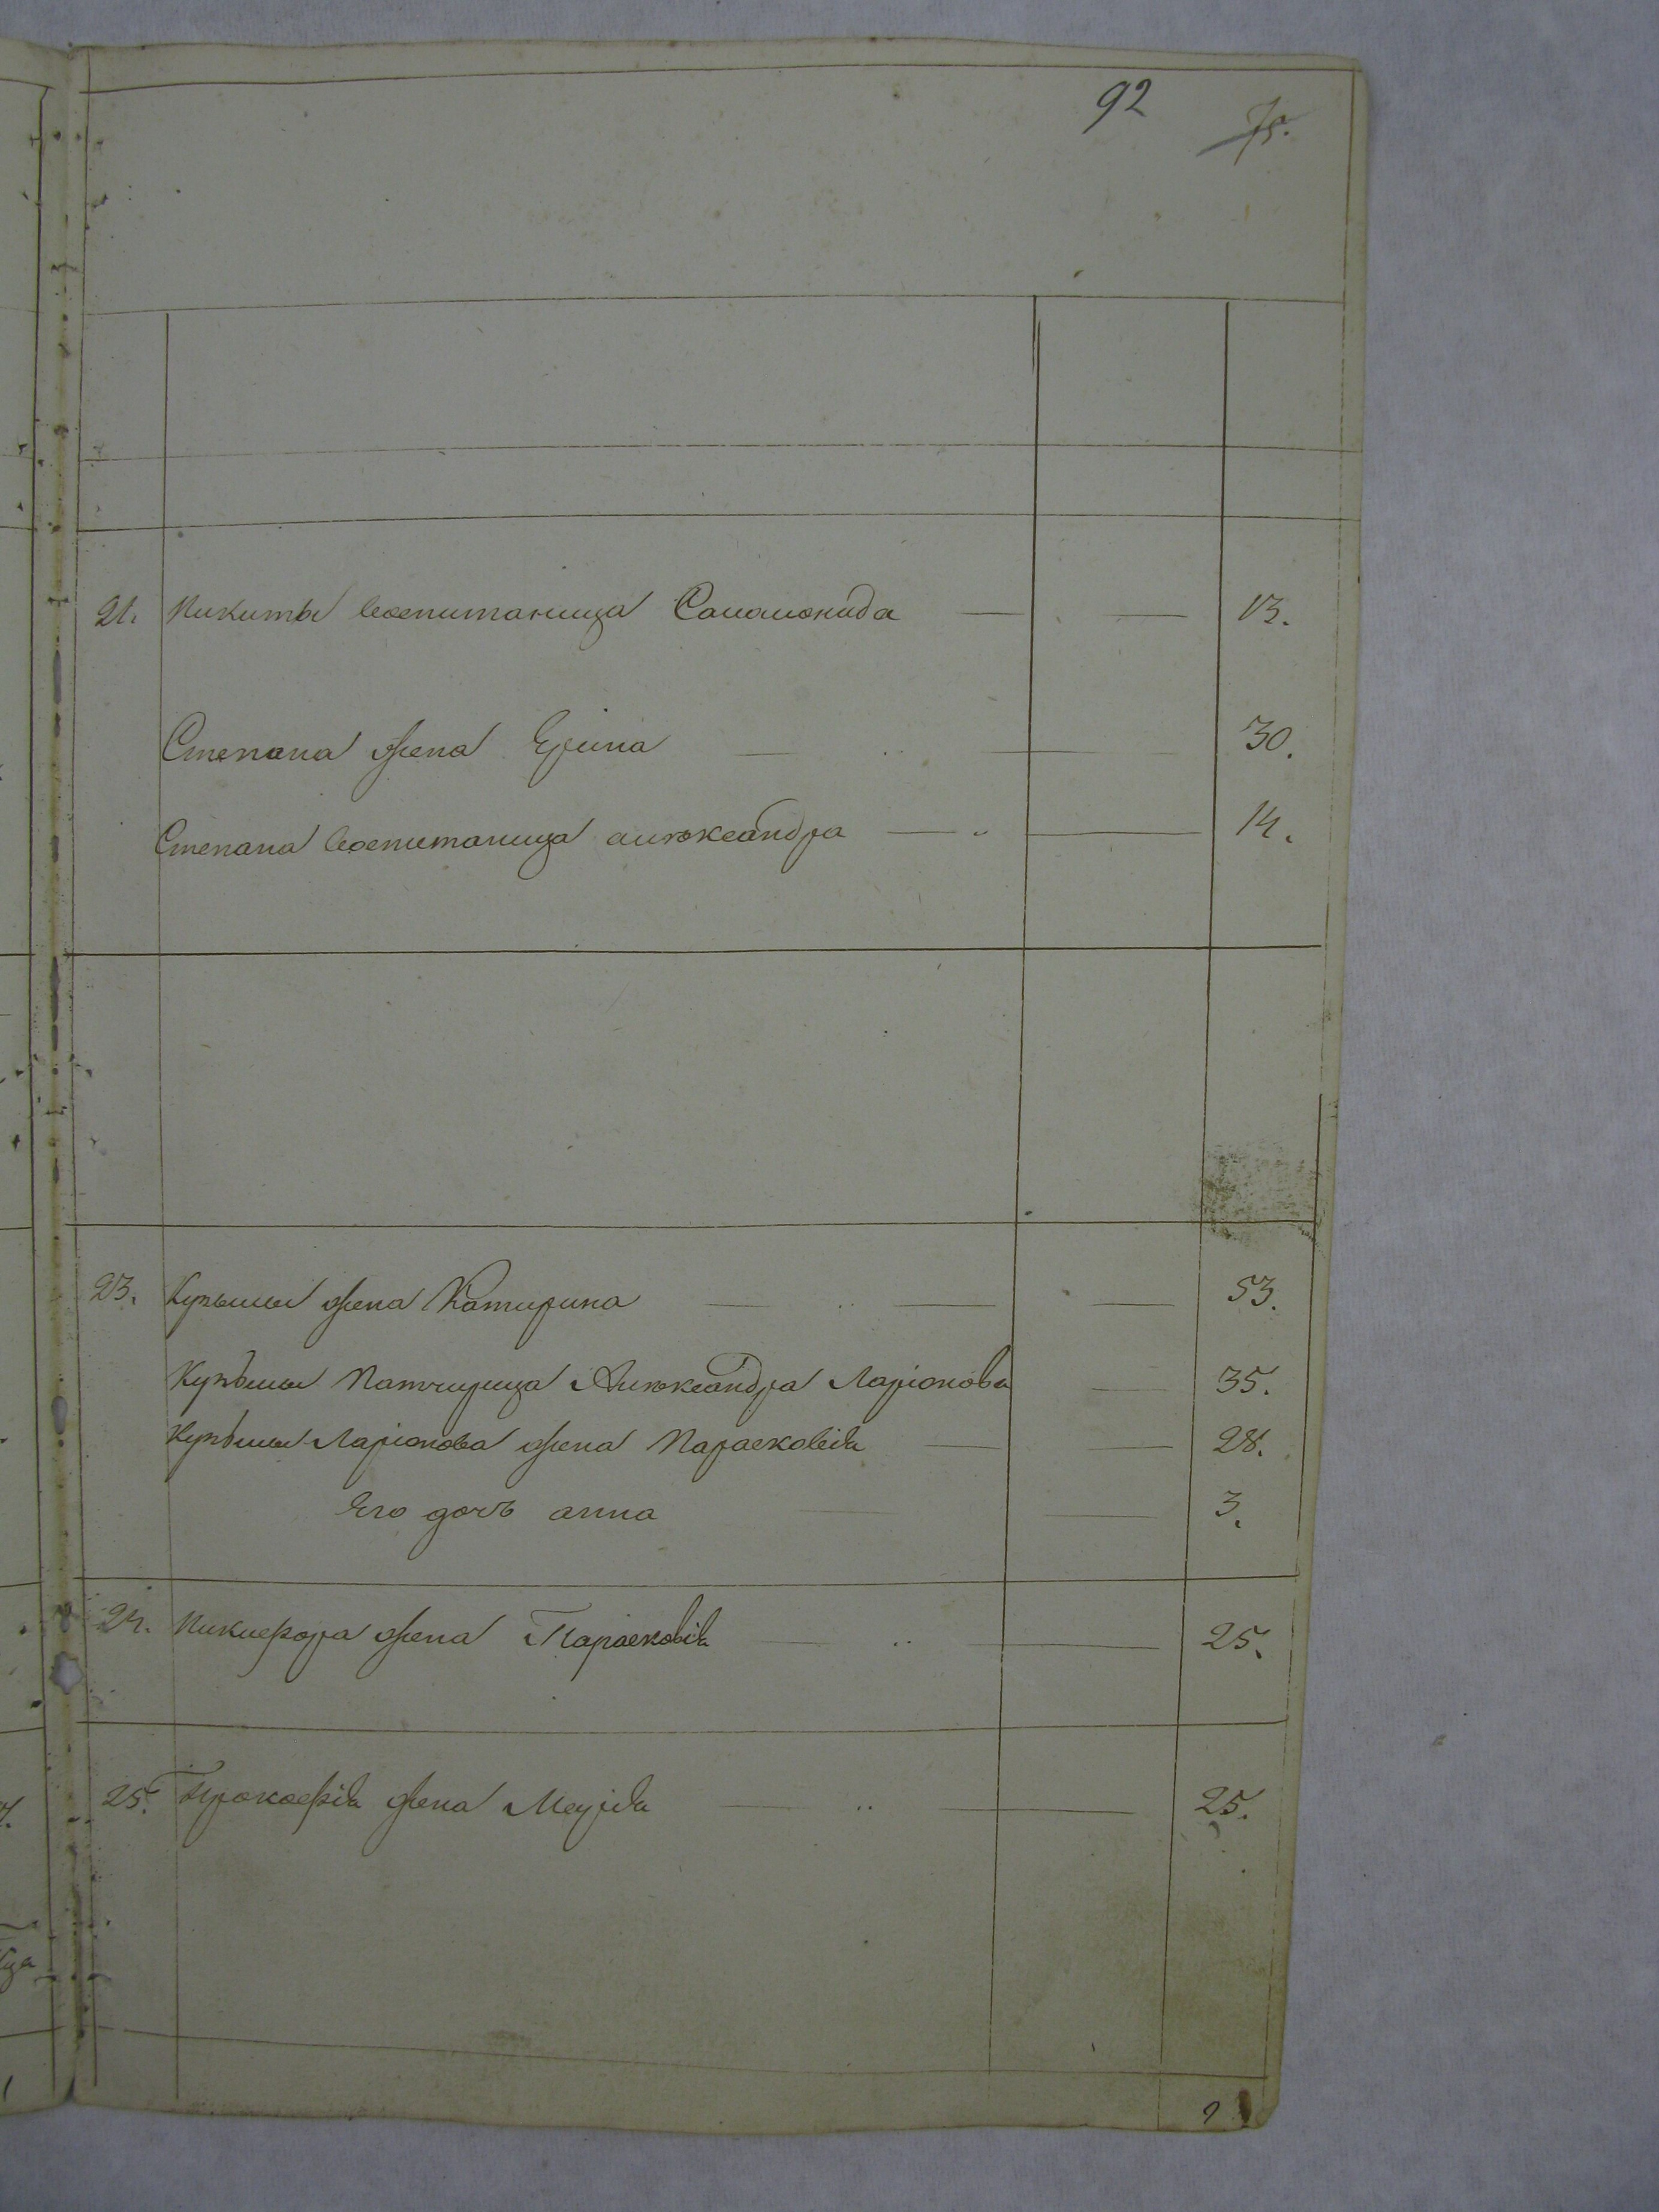 92
75.
21. Никиты воспитаница Соломонида — — 13.
Степана жена Ерина — — 30.
Степана воспитаница александра — — 14.
23. Кузьмы жена Катирина — — 53.
Кузьмы Падчирица Александра Ларіонова — 35.
Кузьмы Ларіонова жена Парасковія — — 28.
Его дочь анна — 3.
24. Никифора жена Парасковія — — 25.
25. Прокофія жена Марія — — 25.
9